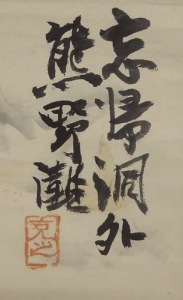 忘帰洞外
熊野灘